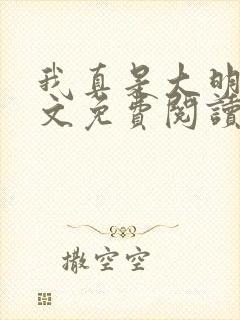 我真是大明
文免費閱讀
撒空空